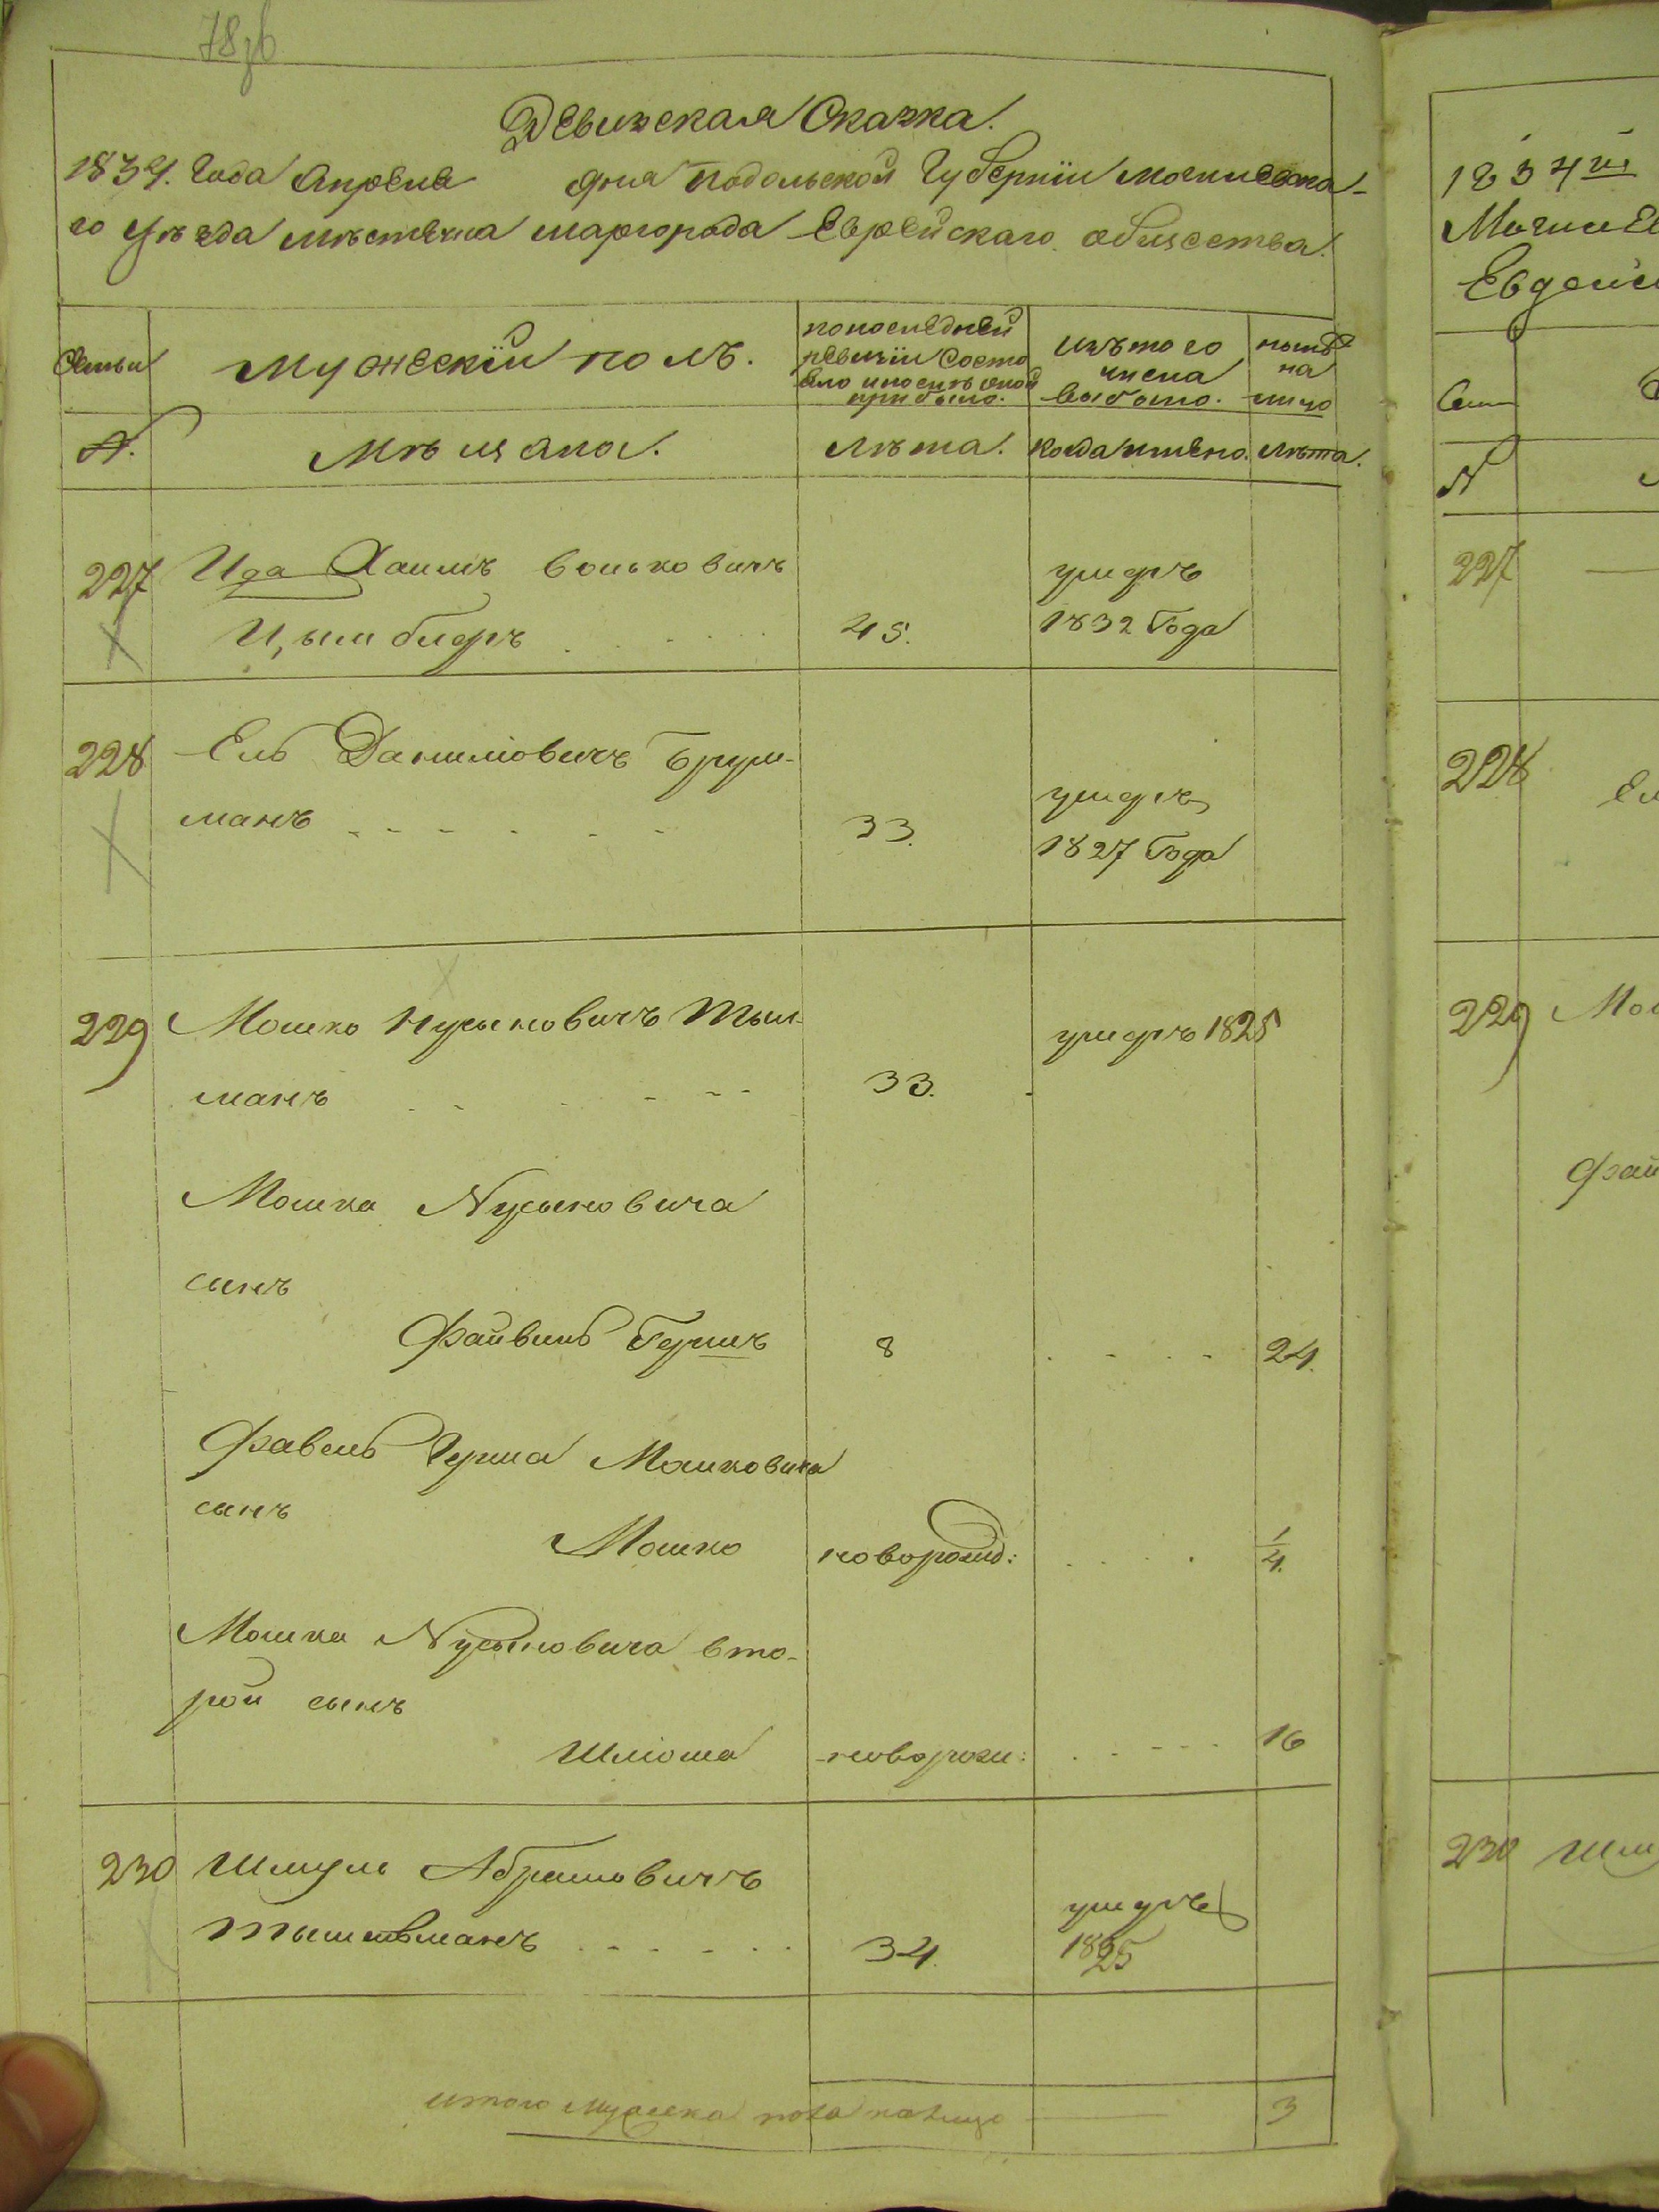 78
Ревизская Сказка.
1834. Года Апреля дня Подольской Губернiи Могилевска-
го Уѣзда мѣстечка Шаргорода Еврейскаго общества.
Семьи
Мужескiй полъ.
по последней
ревизiи состо
яло и послѣ оной
прибыло.
Изъ того
числа
выбыло.
нынѣ
на
лицо
№.
Мѣщана.
Лѣта.
Когда имено.
Лѣта.
227
Ида Хаимъ Вольковичъ
Цымблеръ
45.
умеръ
1832 Года
228
Ель Данилiовичъ Брум-
манъ
33.
умеръ
1827 Года
229
Мошко Нусыновичъ Тыш-
манъ
33.
умеръ 1825
Мошка Нусыновича
сынъ
Файвель Гершъ
8
24.
Фавель Герша Мошковича
сынъ
Мошко
новорожд:
1/4.
Мошка Нусыновича вто-
рой сынъ
Шлiома
новорож:
16
230
Шмуль Абрамовичъ
34.
умеръ
1825
итого мужеска пола на лицо
3
1834го
227
228
Ел
229
Мош
Фай
230
Шму